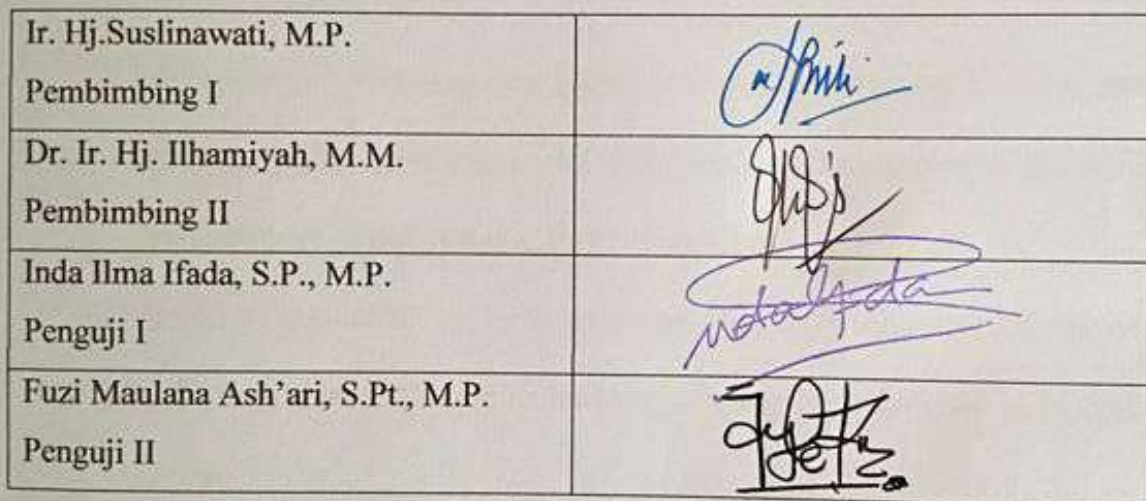 Ir. Hj.Suslinawati, M.P.
Pembimbing I
Dr. Ir. Hj. Ilhamiyah, M.M.
Pembimbing II
Inda Ilma Ifada, S.P., M.P.
Penguji I
Fuzi Maulana Ash'ari, S.Pt., M.P.
Penguji II